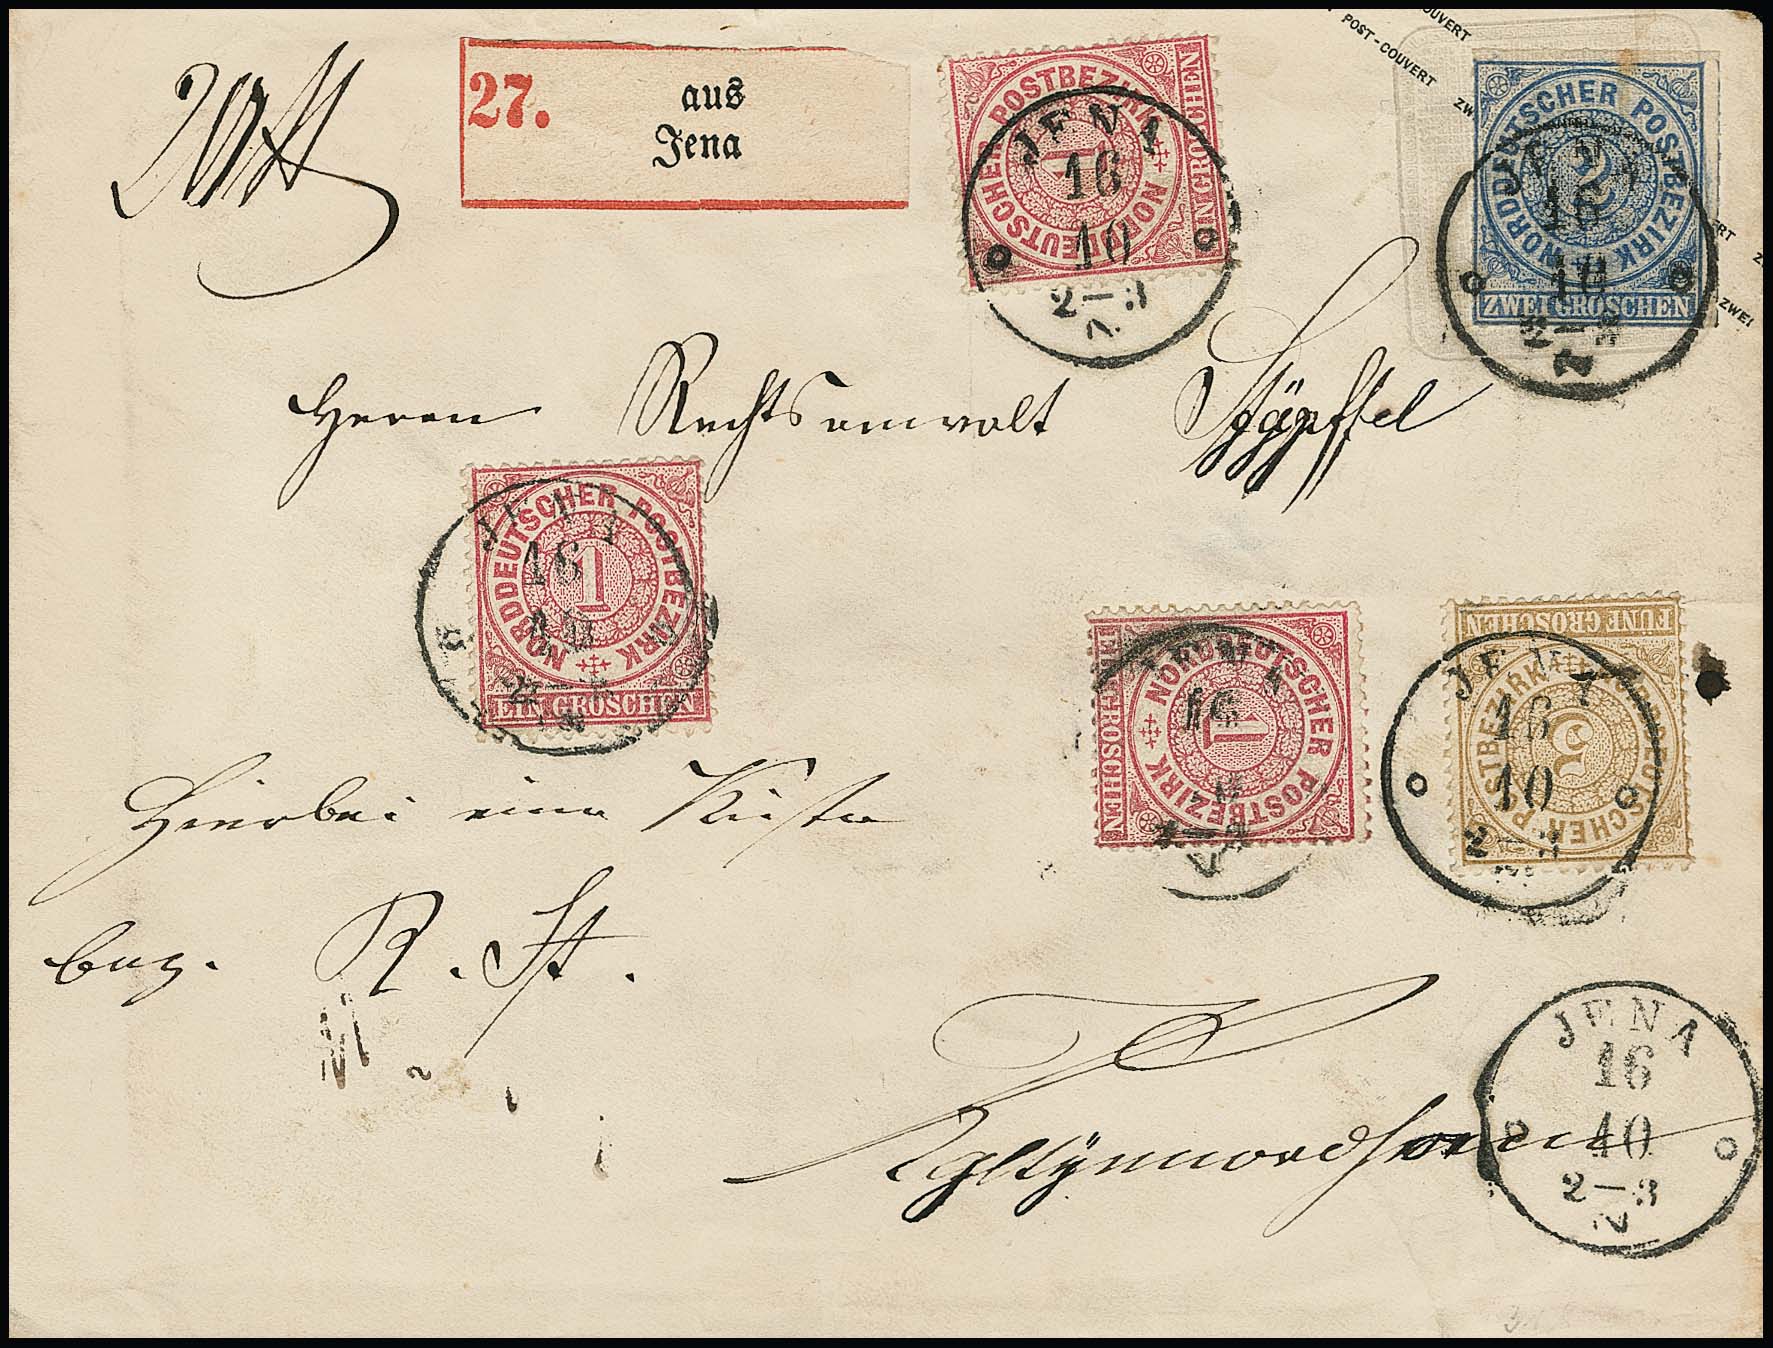 POST-COUVERT
27. aus
Jena
NORDDEUTSCHER POSTBEZIRK
EIN GROSCHEN
JENA
16
10
2-3
N
NORDDEUTSCHER POSTBEZIRK
2
ZWEI GROSCHEN
JENA
16
10
2-3
N
Herrn Rechtsanwalt
NORDDEUTSCHER POSTBEZIRK
1
EIN GROSCHEN
JENA
16
10
NORDDEUTSCHER POSTBEZIRK
1
EIN GROSCHEN
16
FÜNF GROSCHEN
NORDDEUTSCHER POSTBEZIRK
5
JENA
16
10
2-3
Hierbei eine Kiste
R. St.
JENA
16
10
2-3
N